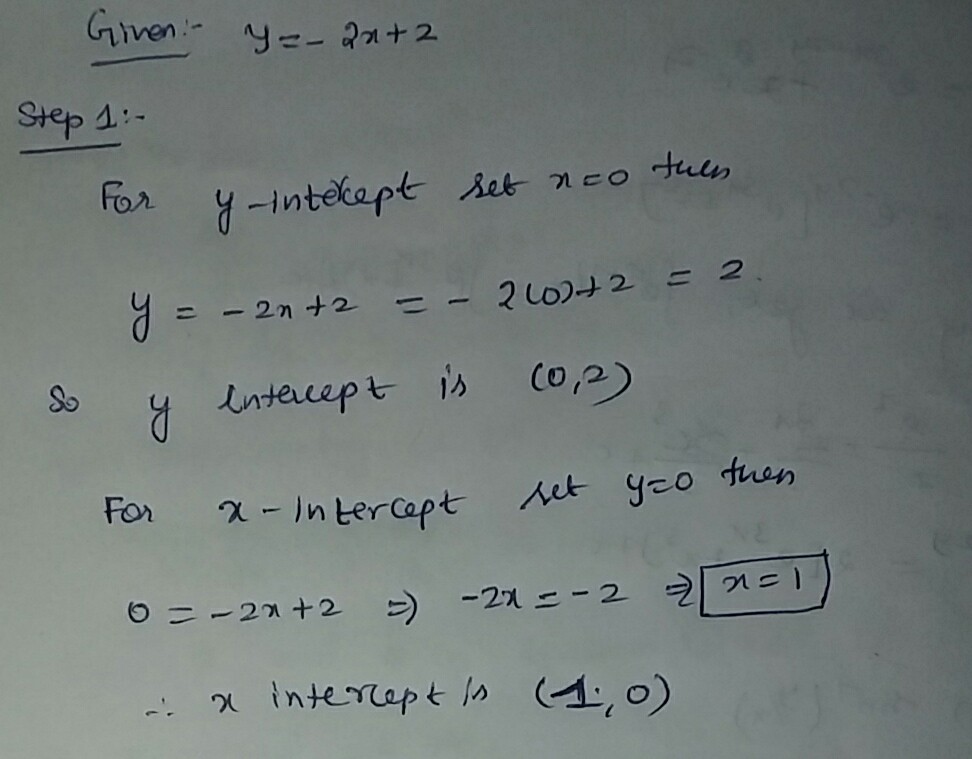 Given:- y = - 2x + 2
Step 1:-
For y-intercept set x=0 then
y = - 2x + 2 = - 2(0)+2 = 2.
So y intercept is (0,2)
For x-Intercept set y=0 then
0 = -2x + 2 ⇒ -2x = -2 ⇒ x=1
∴ x intercept is (1,0)